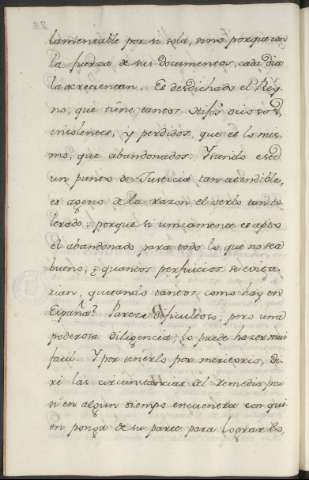 lamentable por si sola, sino porque con
la fuerza de sus documentos, cada dia
la acrecientan. Es desdichado el Rey-
no, que tiene tantos
insolentes, y perdidos, que es lo mis-
mo, que abandonados. Y siendo este
un punto de Justicia tan atendible,
es ageno de la razon el verlo tan to-
lerado; porque si unicamente es apto
el abandonado para todo lo que no sea
bueno, ¿quantos perjuicios se
quitando tantos, como hay en
España? Parece dificultoso, pero una
poderosa diligencia, lo puede hacer mui
facil. Y por tenerlo por meritorio, di-
ré las circunstancias del remedio, por
si en algun tiempo encuentra con qui-
en ponga de su parte para lograrlo,